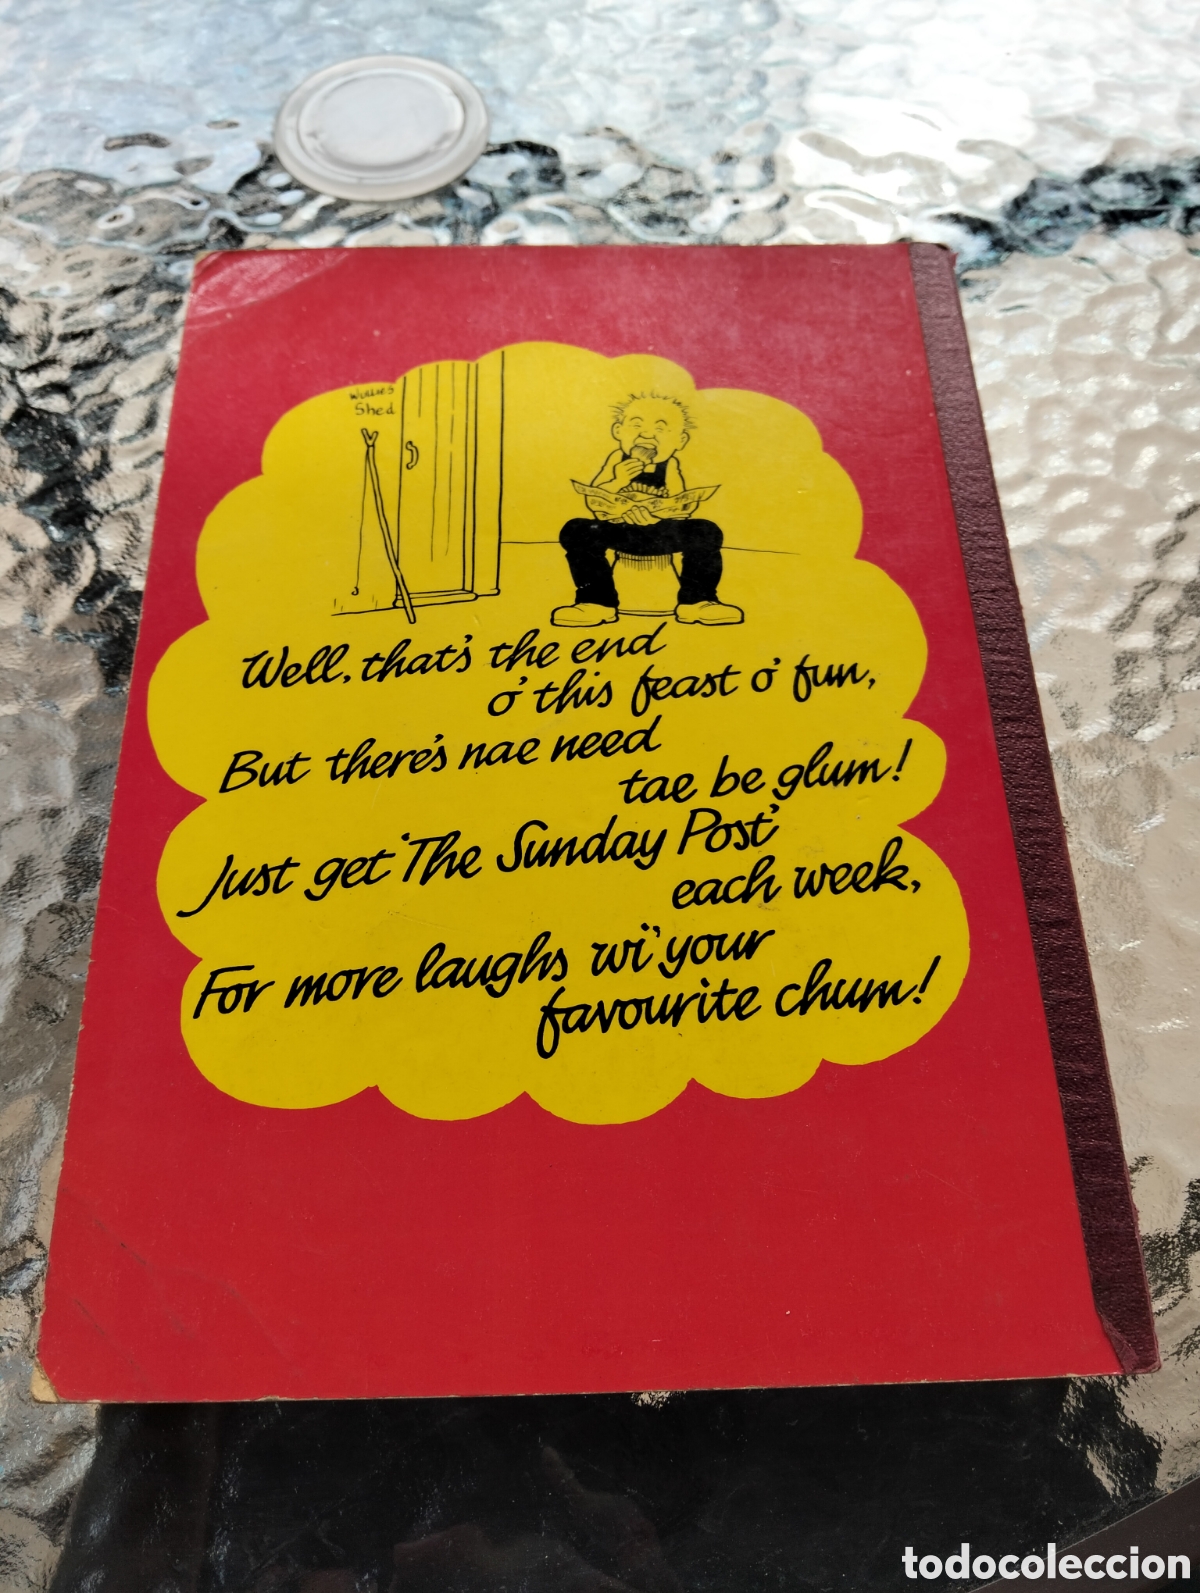 Willie's
Shed
Well, that's the end
o' this feast o' fun,
But there's nae need
tae be glum!
Just get 'The Sunday Post'
each week,
For more laughs wi' your
favourite chum!
todocoleccion